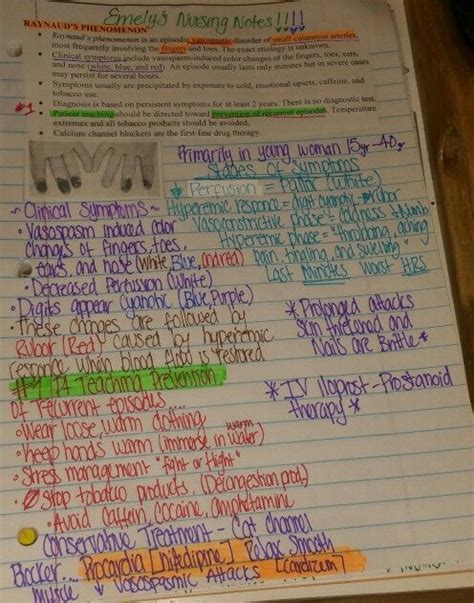 Emely's Nursing Notes!!!!
RAYNAUD'S PHENOMENON
• Raynaud's phenomenon is an episodic vasospastic disorder of small cutaneous arteries,
most frequently involving the fingers and toes. The exact etiology is unknown.
• Clinical symptoms include vasospasm-induced color changes of the fingers, toes, ears,
and nose (white, blue, and red). An episode usually lasts only minutes but in severe cases
may persist for several hours.
• Symptoms usually are precipitated by exposure to cold, emotional upsets, caffeine, and
tobacco use.
• Diagnosis is based on persistent symptoms for at least 2 years. There is no diagnostic test.
#1 • Patient teaching should be directed toward prevention of recurrent episodes. Temperature
extremes and all tobacco products should be avoided.
• Calcium channel blockers are the first-line drug therapy.
Primarily in young woman 15yr-40yr
Stages of Symptoms
↓ Perfusion = Pallor (White)
Hyperemic responce = digit cyanotic → rubor
Vasoconstrictive phase = coldness + numb
Hyperemic phase = "throbbing, aching
pain, tingling, and swelling"
Last Minutes Worst HRS
~ Clinical Symptoms ~
• Vasospasm induced color
changes of fingers, toes,
ears and nose (White, Blue, and red)
• Decreased Perfusion (White)
• Digits appear Cyanotic (Blue, Purple)
• These changes are followed by
Rubor (Red) caused by hyperemic
response when blood flood is restored
* Prolonged attacks
Skin thickened and
Nails are Brittle *
#1 Pt Teaching Prevention
Of recurrent episodes...
* IV Iloprost - Prostanoid
therapy *
• Wear loose, warm clothing
• Keep hands warm (immerse in warm water)
• Stress management "fight or flight"
• Stop tobacco products. (Decongestion prod.)
• Avoid Caffein, Cocaine, Amphetamine
Conservative Treatment - Ca+ Channel
Blocker... Procardia [nifedipine] Relax Smooth
Muscle ↓ Vasospasmic Attacks [Cardizem]